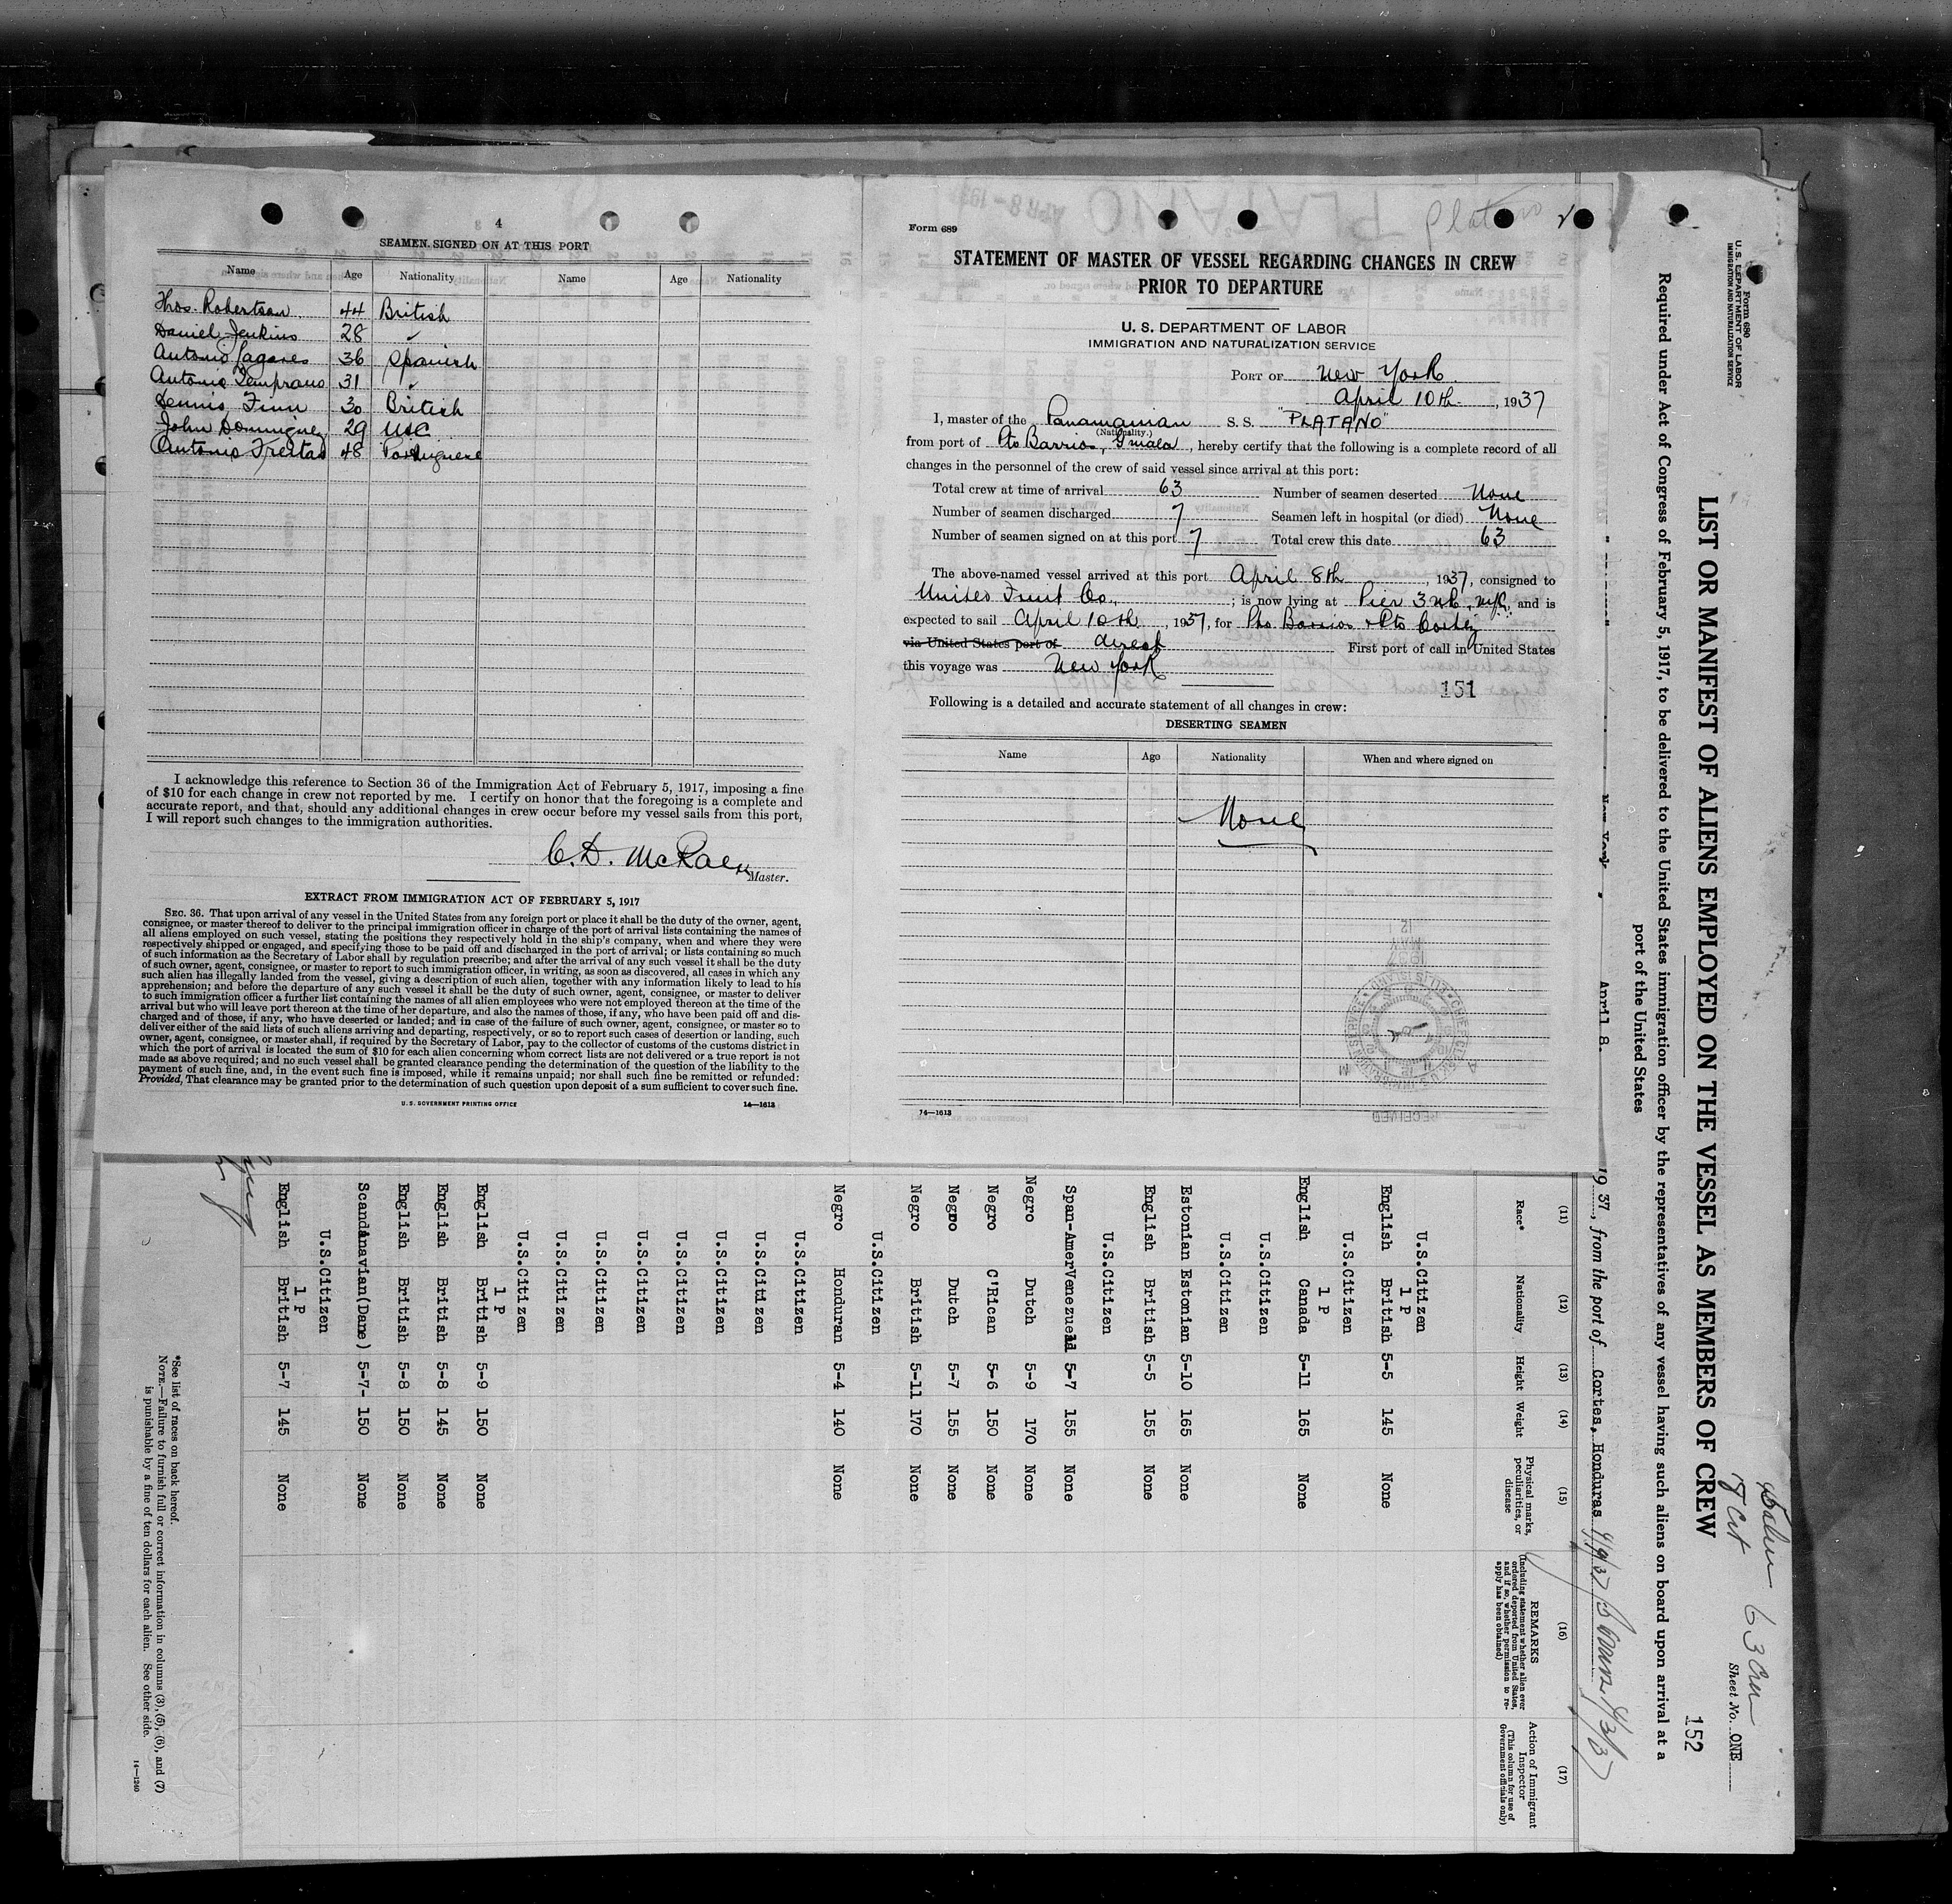 4
SEAMEN SIGNED ON AT THIS PORT
Name Age Nationality Name Age Nationality
Thos. Robertson 44 British
Daniel Jenkins 28 "
Antonio Lagares 36 Spanish
Antonio Temprano 31 "
Dennis Finn 30 British
John Dominguez 29 USC
Antonio Freitas 48 Portuguese
I acknowledge this reference to Section 36 of the Immigration Act of February 5, 1917, imposing a fine
of $10 for each change in crew not reported by me. I certify on honor that the foregoing is a complete and
accurate report, and that, should any additional changes in crew occur before my vessel sails from this port,
I will report such changes to the immigration authorities.
C. D. McRae
Master.
EXTRACT FROM IMMIGRATION ACT OF FEBRUARY 5, 1917
SEC. 36. That upon arrival of any vessel in the United States from any foreign port or place it shall be the duty of the owner, agent,
consignee, or master thereof to deliver to the principal immigration officer in charge of the port of arrival lists containing the names of
all aliens employed on such vessel, stating the positions they respectively hold in the ship's company, when and where they were
respectively shipped or engaged, and specifying those to be paid off and discharged in the port of arrival; or lists containing so much
of such information as the Secretary of Labor shall by regulation prescribe; and after the arrival of any such vessel it shall be the duty
of such owner, agent, consignee, or master to report to such immigration officer, in writing, as soon as discovered, all cases in which any
such alien has illegally landed from the vessel, giving a description of such alien, together with any information likely to lead to his
apprehension; and before the departure of any such vessel it shall be the duty of such owner, agent, consignee, or master to deliver
to such immigration officer a further list containing the names of all alien employees who were not employed thereon at the time of the
arrival but who will leave port thereon at the time of her departure, and also the names of those, if any, who have been paid off and dis-
charged and of those, if any, who have deserted or landed; and in case of the failure of such owner, agent, consignee, or master so to
deliver either of the said lists of such aliens arriving and departing, respectively, or so to report such cases of desertion or landing, such
owner, agent, consignee, or master shall, if required by the Secretary of Labor, pay to the collector of customs of the customs district in
which the port of arrival is located the sum of $10 for each alien concerning whom correct lists are not delivered or a true report is not
made as above required; and no such vessel shall be granted clearance pending the determination of the question of the liability to the
payment of such fine, and, in the event such fine is imposed, while it remains unpaid; nor shall such fine be remitted or refunded:
Provided, That clearance may be granted prior to the determination of such question upon deposit of a sum sufficient to cover such fine.
U.S. GOVERNMENT PRINTING OFFICE 14—1613
Platano
Form 689
STATEMENT OF MASTER OF VESSEL REGARDING CHANGES IN CREW
PRIOR TO DEPARTURE
U. S. DEPARTMENT OF LABOR
IMMIGRATION AND NATURALIZATION SERVICE
PORT OF New York
April 10th, 1937
I, master of the Panamanian S. S. "PLATANO"
(Nationality.)
from port of Pto Barrios, Gmala, hereby certify that the following is a complete record of all
changes in the personnel of the crew of said vessel since arrival at this port:
Total crew at time of arrival 63 Number of seamen deserted None
Number of seamen discharged 7 Seamen left in hospital (or died) None
Number of seamen signed on at this port 7 Total crew this date 63
The above-named vessel arrived at this port April 8th, 1937, consigned to
United Fruit Co.; is now lying at Pier 3 NR, NYC, and is
expected to sail April 10th, 1937, for Pto Barrios & Pto Cortez
via United States port of direct First port of call in United States
this voyage was New York
151
Following is a detailed and accurate statement of all changes in crew:
DESERTING SEAMEN
Name Age Nationality When and where signed on
None
14—1613
Form 680
U. S. DEPARTMENT OF LABOR
IMMIGRATION AND NATURALIZATION SERVICE
63 Crew
Sheet No. ONE
152
LIST OR MANIFEST OF ALIENS EMPLOYED ON THE VESSEL AS MEMBERS OF CREW
Required under Act of Congress of February 5, 1917, to be delivered to the United States immigration officer by the representatives of any vessel having such aliens on board upon arrival at a
port of the United States
New York, April 8. 1937, from the port of Cortes, Honduras
(11) (12) (13) (14) (15) (16) (17)
Race* Nationality Height Weight Physical marks, peculiarities, or disease REMARKS (Including statement whether alien ever ordered deported from United States, and if so, whether permission to re-apply has been obtained) Action of Immigrant Inspector (This column for use of Government officials only)
U.S.Citizen
1 P
English British 5-5 145 None
U.S.Citizen
1 P
English Canada 5-11 165 None
U.S.Citizen
U.S.Citizen
Estonian Estonian 5-10 165 None
English British 5-5 155 None
U.S.Citizen
Span-Amer Venezuela 5-7 155 None
Negro Dutch 5-9 170 None
Negro C'Rican 5-6 150 None
Negro Dutch 5-7 155 None
Negro British 5-11 170 None
U.S.Citizen
Negro Honduran 5-4 140 None
U.S.Citizen
U.S.Citizen
U.S.Citizen
U.S.Citizen
U.S.Citizen
U.S.Citizen
U.S.Citizen
U.S.Citizen
1 P
English British 5-9 150 None
English British 5-8 145 None
English British 5-8 150 None
Scandinavian(Dane) 5-7- 150 None
U.S.Citizen
1 P
English British 5-7 145 None
*See list of races on back hereof.
NOTE.—Failure to furnish full or correct information in columns (3), (5), (6), and (7)
is punishable by a fine of ten dollars for each alien. See other side.
14—1240